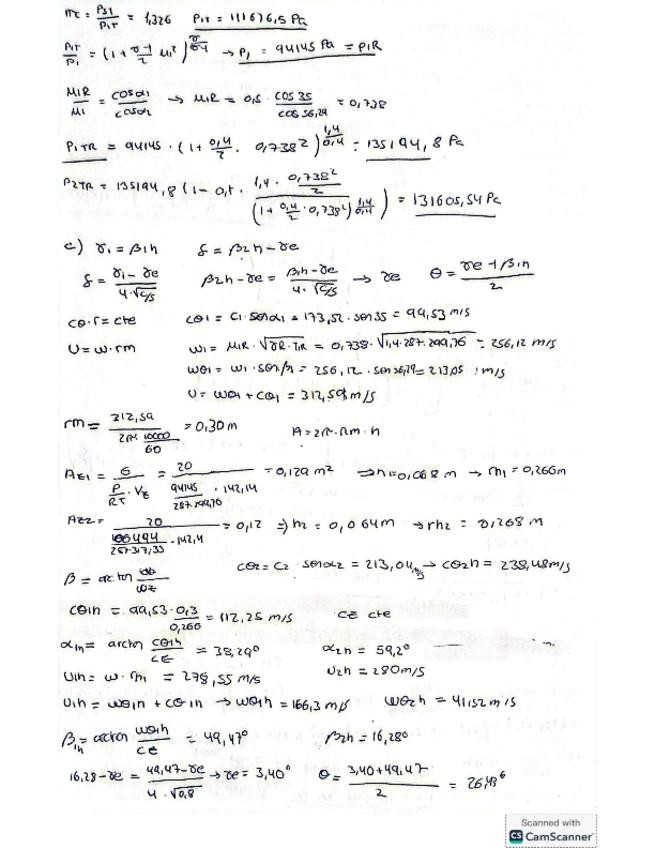 πc = P3T/P1T = 1,326   P1T = 111676,5 Pa
P1T/P1 = (1 + γ-1/2 M1²)^γ/γ-1 → P1 = 94145 Pa = P1R
M1R/M1 = cosα1/cosα → M1R = 0,5 · cos 35/cos 56,29 = 0,738
P1TR = 94145 · (1 + 0,4/2 · 0,738²)^1,4/0,4 = 135194,8 Pa
P2TR = 135194,8 (1 - 0,1 · 1,4 · 0,738²/2 / (1 + 0,4/2 · 0,738²)^1,4/0,4) = 131605,54 Pa
c) γi = β1h   δ = β2h - γe
δ = γi - γe / 4·√c/s   β2h - γe = β1h - γe / 4·√c/s → γe   θ = γe + β1h / 2
cθ·r = cte   cθ1 = c1·senα1 = 173,52 · sen 35 = 99,53 m/s
U = ω·rm   w1 = M1R · √γR·T1R = 0,738 · √1,4·287·299,76 = 256,12 m/s
wθ1 = w1 · senβ1 = 256,12 · sen 56,29 = 213,05 m/s
U = wθ1 + cθ1 = 312,59 m/s
rm = 312,59 / 2π·10000/60 = 0,30 m   A = 2π·rm·h
AE1 = G / P/RT · Vz = 20 / 94145/287·299,76 · 142,14 = 0,129 m² ⇒ h1 = 0,068 m → rh1 = 0,266 m
AE2 = 20 / 106494/287·317,33 · 142,4 = 0,12 ⇒ h2 = 0,064 m → rh2 = 0,268 m
β = arctan wθ/wz   cθ2 = c2 · senα2 = 213,04 m/s → cθ2h = 238,48 m/s
cθ1h = 99,53 · 0,3/0,266 = 112,25 m/s   cz cte
α1h = arctan cθ1h/cz = 38,29°   α2h = 59,2°
U1h = ω · rh1 = 278,55 m/s   U2h = 280 m/s
U1h = wθ1h + cθ1h → wθ1h = 166,3 m/s   wθ2h = 41,52 m/s
β1h = arctan wθ1h/cz = 49,47°   β2h = 16,28°
16,28 - γe = 49,47 - γe / 4·√0,8 → γe = 3,40°   θ = 3,40 + 49,47 / 2 = 26,43°
Scanned with
CS CamScanner